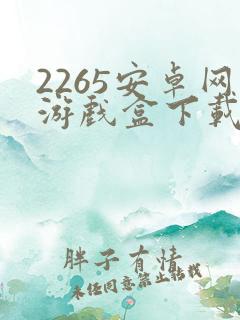 2265安卓网
游戏盒下载
胖子有情
未经同意禁止转载